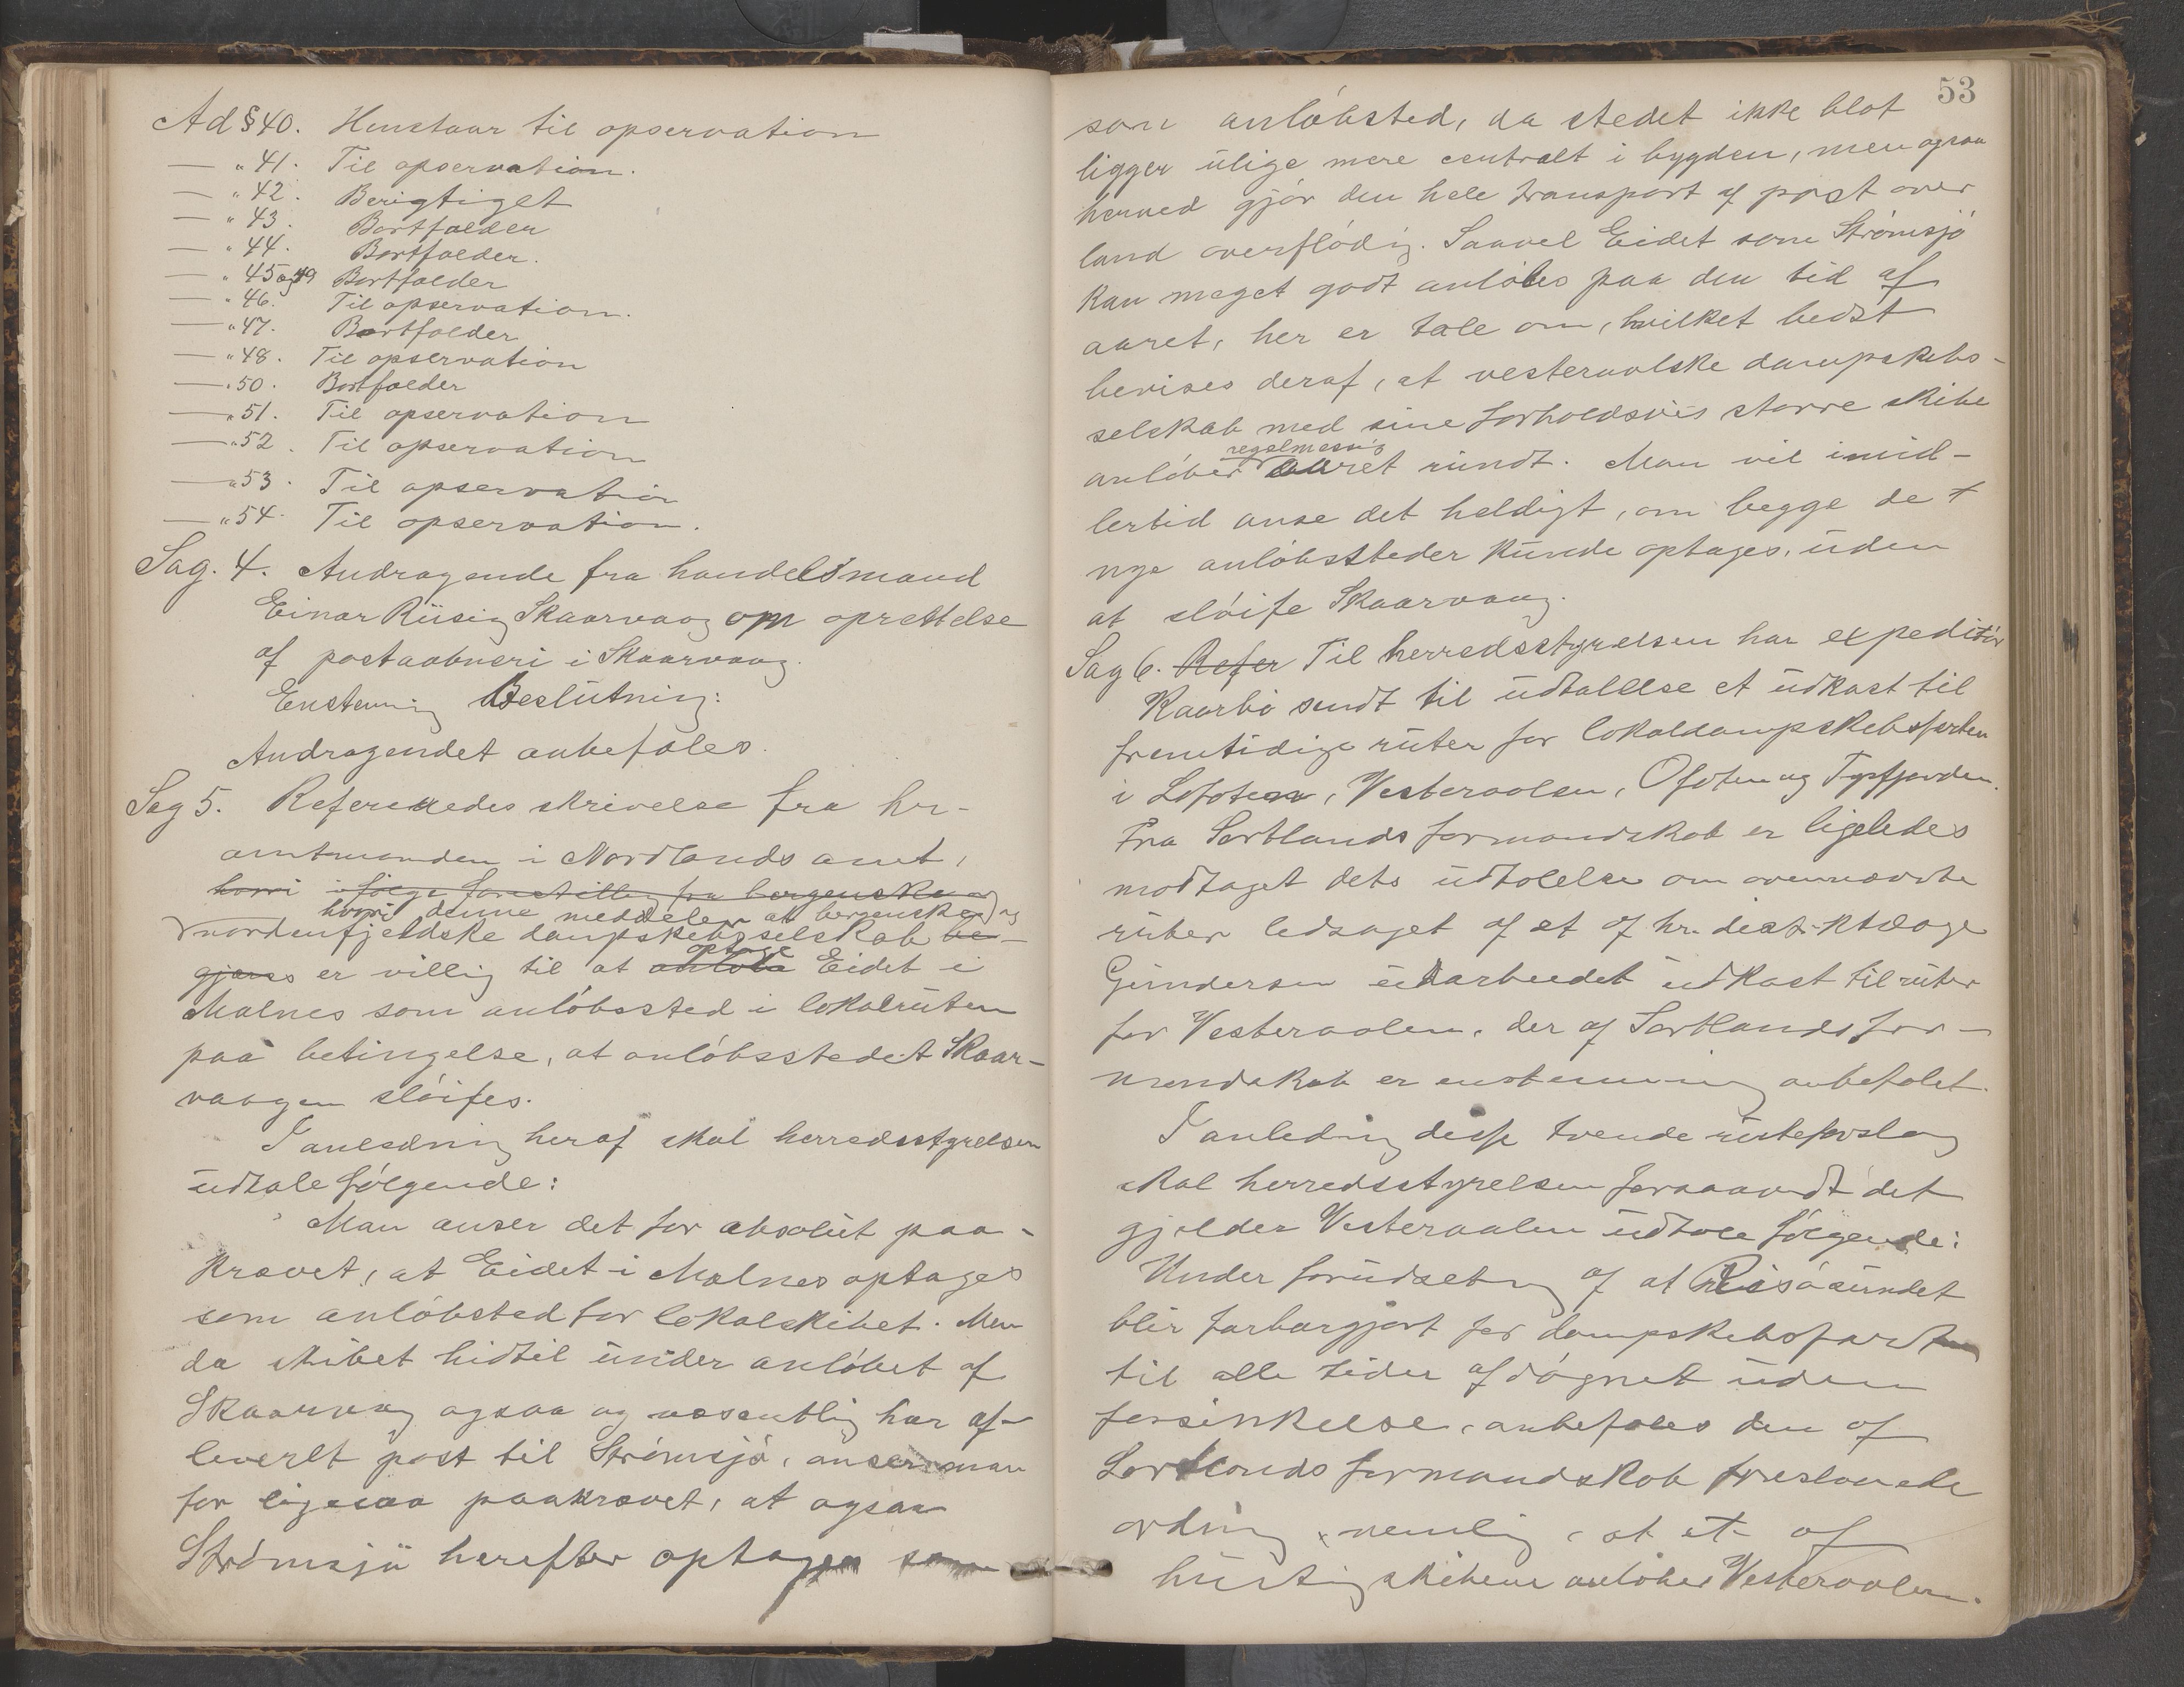 Ad § 40. Henstaar til opservation
— " 41. Til opservation.
— " 42. Berigtiget
— " 43. Bortfalder
— " 44. Bortfalder.
— " 45 og 49 Bortfalder
— " 46. Til opservation.
— " 47. Bortfalder
— " 48. Til opservation
— " 50. Bortfalder
— " 51. Til opservation
— " 52. Til opservation
— " 53. Til opservation
— " 54. Til opservation.
Sag. 4. Andragende fra handelsmand
Einar Riisig Skaarvaag om oprettelse
af postaabneri i Skaarvaag.
Enstemig Beslutning:
Andragendet anbefales.
Sag 5. Refereredes skrivelse fra hr-
amtmanden i Nordlands amt,
hvori ifølge forestilling fra bergenske og
hvori denne meddeler at bergenske og
nordenfjeldske dampskibsselskab be-
optage
gjæres er villig til at anløbe Eidet i
Malnes som anløbssted i lokalruten
paa betingelse, at anløbsstedet Skaar-
vaagen sløifes.
I anledning heraf skal herredsstyrelsen
udtale følgende:
Man anser det for absolut paa-
krævet, at Eidet i Malnes optages
som anløbsted for lokalskibet. Men
da skibet hidtil under anløbet af
Skaarvaag ogsaa og væsentlig har af-
leverlt post til Strømsjø, anser man
for ligesaa paakrævet, at ogsaa
Strømsjø herefter optages som
53
som anløbsted, da stedet ikke blot
ligger ulige mere centralt i bygden, men ogsaa
herved gjør den hele transport af post over
land overflødig. Saavel Eidet som Strømsjø
kan meget godt anløbes paa den tid af
aaret, her er tale om, hvilket bedst
bevises deraf, at vesteraalske dampskibs-
selskab med sine forholdsvis større skibe
regelmessig
anløber aaret rundt. Man vil imid-
lertid anse det heldigt, om begge de
nye anløbssteder kunde optages, uden
at sløife Skaarvaag.
Sag 6. Refer Til herredsstyrelsen har expeditør
Kaarbø sendt til udtalelse et udkast til
fremtidige ruter for lokaldampskibsfarten
i Lofoten, Vesteraalen, Ofoten og Tysfjorden.
Fra Sortlands formandskab er ligeledes
modtaget dets udtalelse om ovennævnte
ruter ledsaget af et af hr. distriktslæge
Gundersen udarbeidet udkast til ruter
for Vesteraalen, der af Sortlands for-
mandskab er enstemmig anbefalet.
I anledning disse tvende ruteforslag
skal herredsstyrelsen forsaavidt det
gjelder Vesteraalen udtale følgende:
Under forudsetning af at Risøsundet
blir farbargjort for dampskibsfarten
til alle tider af døgnet uden
forsinkelse, anbefales den af
Sortlands formandskab foreslaaede
ordning, nemlig, at et af
hurtigskibene anløber Vesteraalen.